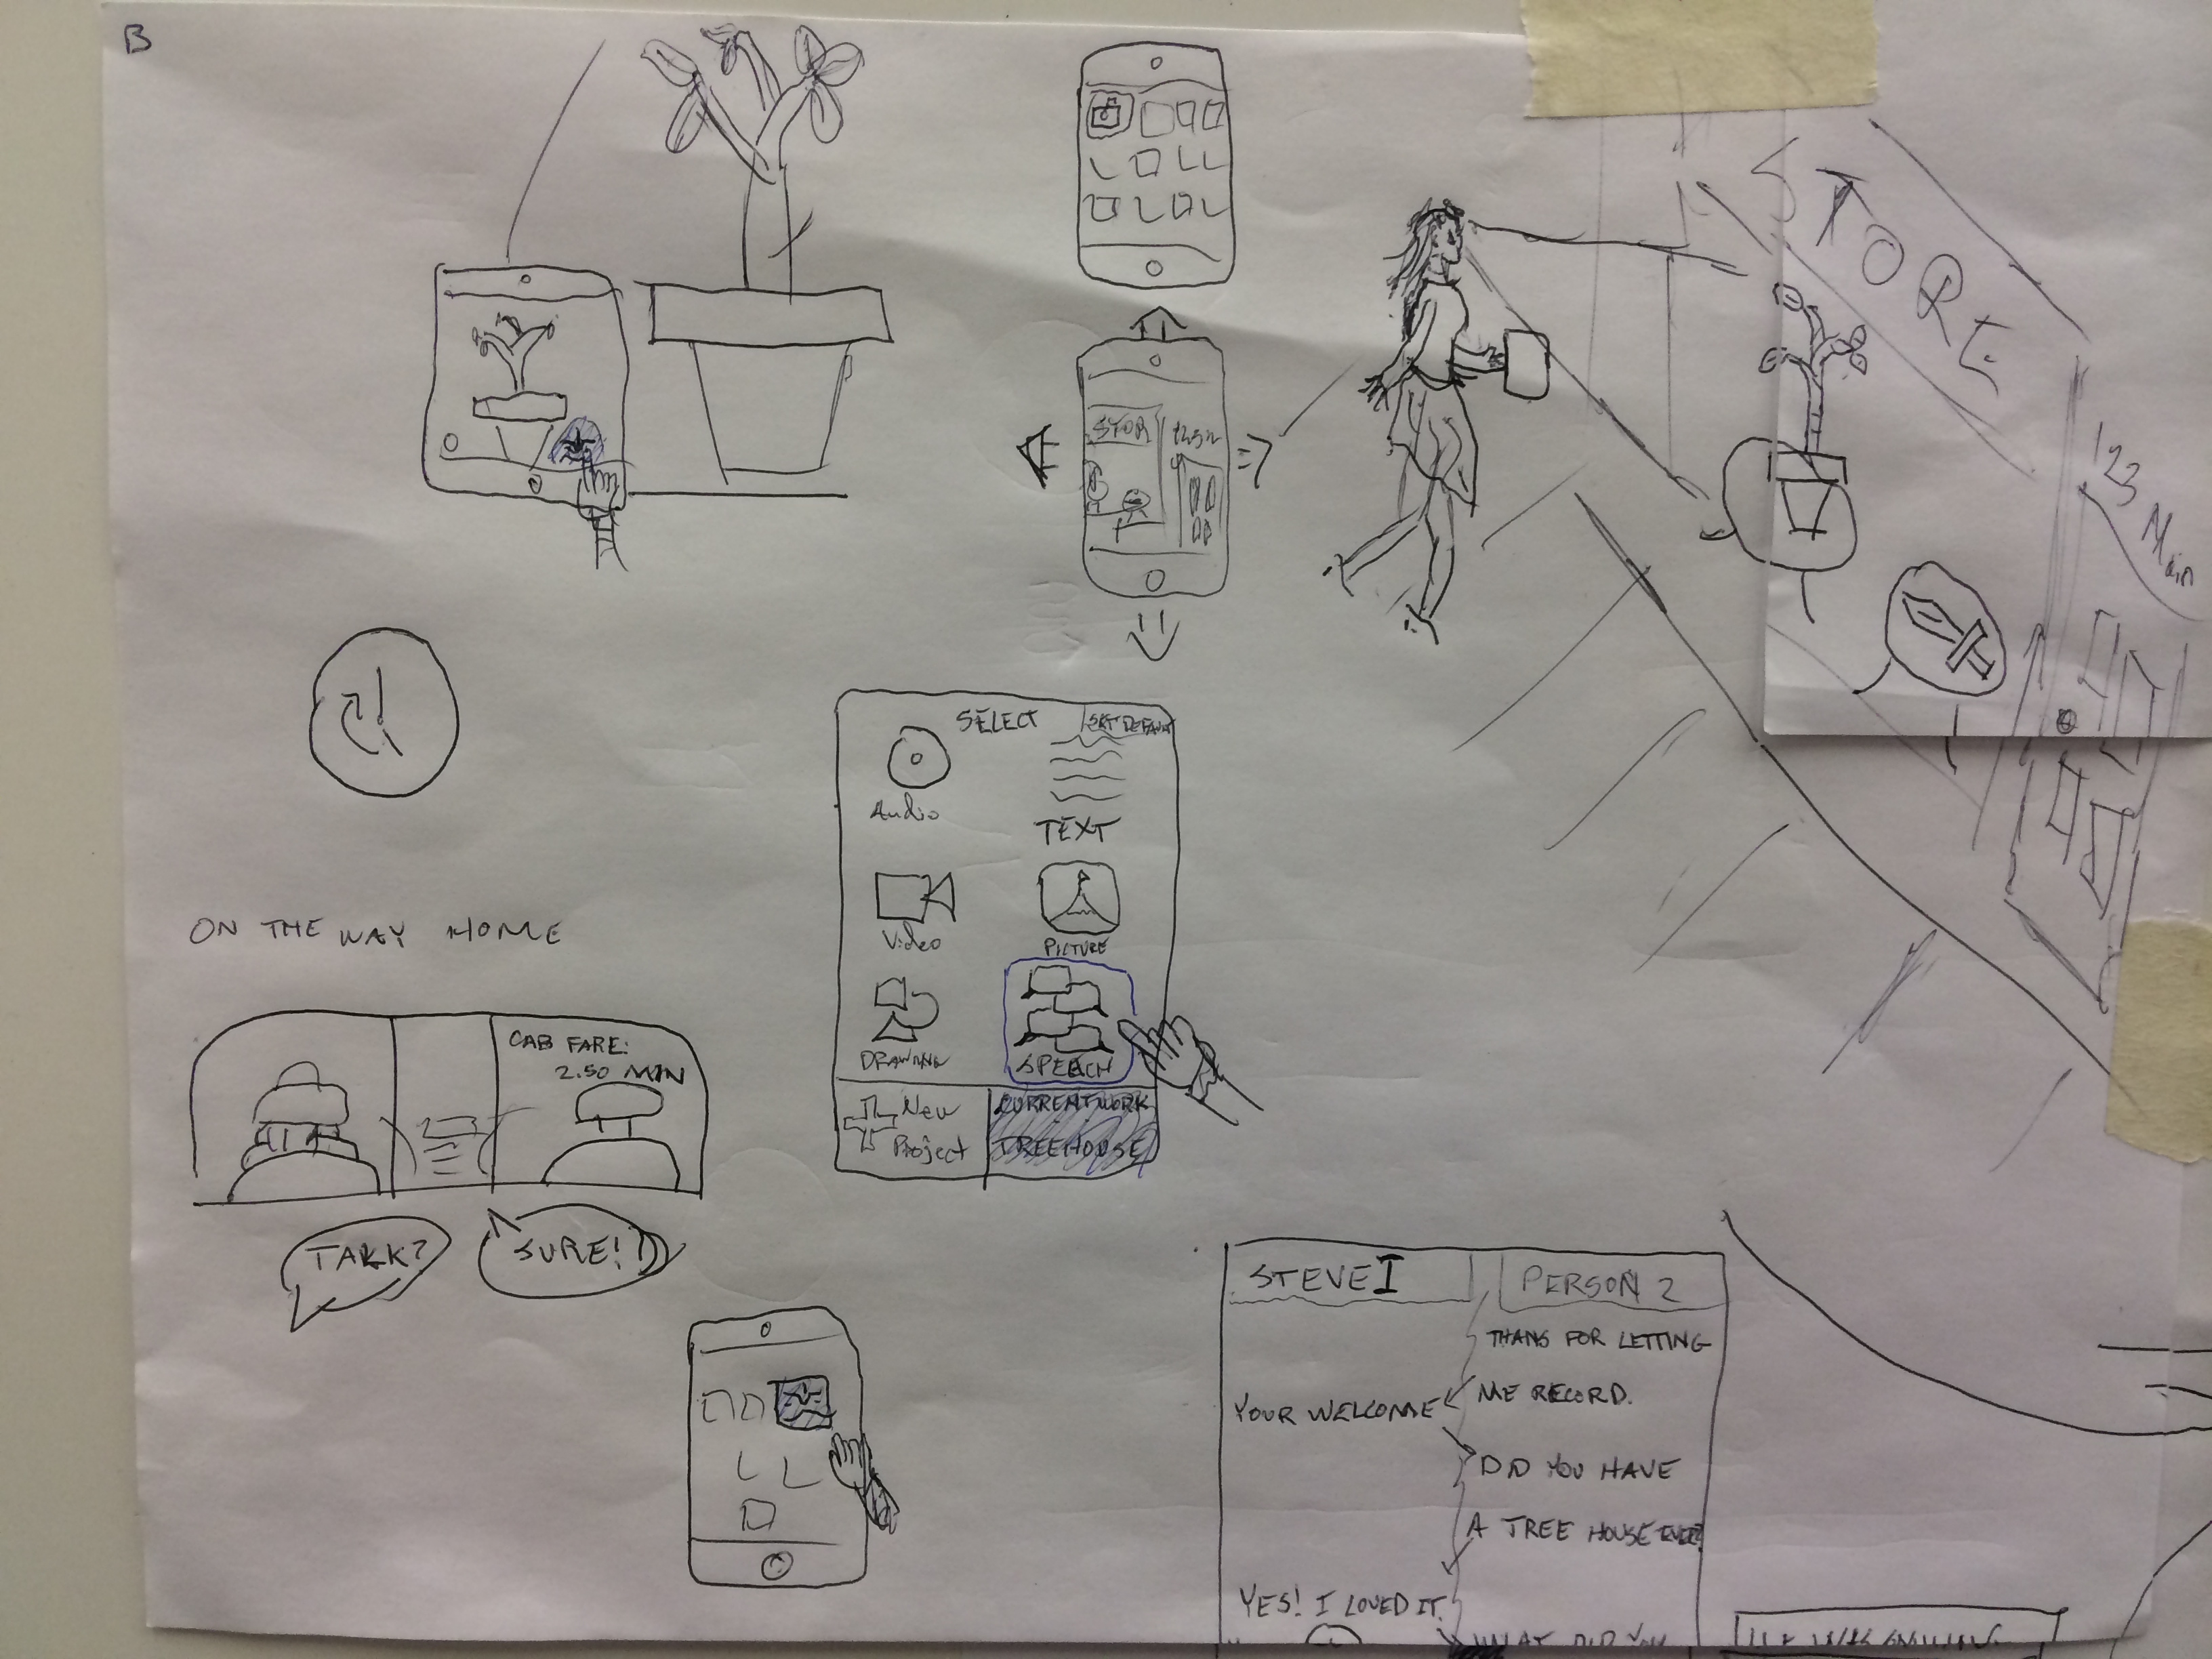 B
STORE
123 Main
STOR
SELECT
SET DEFAULT
Audio
TEXT
Video
PICTURE
DRAWING
SPEECH
New
Project
CURRENT WORK
TREEHOUSE
ON THE WAY HOME
CAB FARE:
2.50 MIN
TALK?
SURE!
STEVE I
PERSON 2
THANS FOR LETTING
ME RECORD.
YOUR WELCOME
DID YOU HAVE
A TREE HOUSE EVER?
YES! I LOVED IT.
WHAT DID YOU